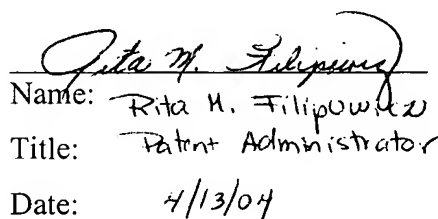 Rita M. Filipowicz
Name: Rita M. Filipowicz
Title: Patent Administrator
Date: 4/13/04